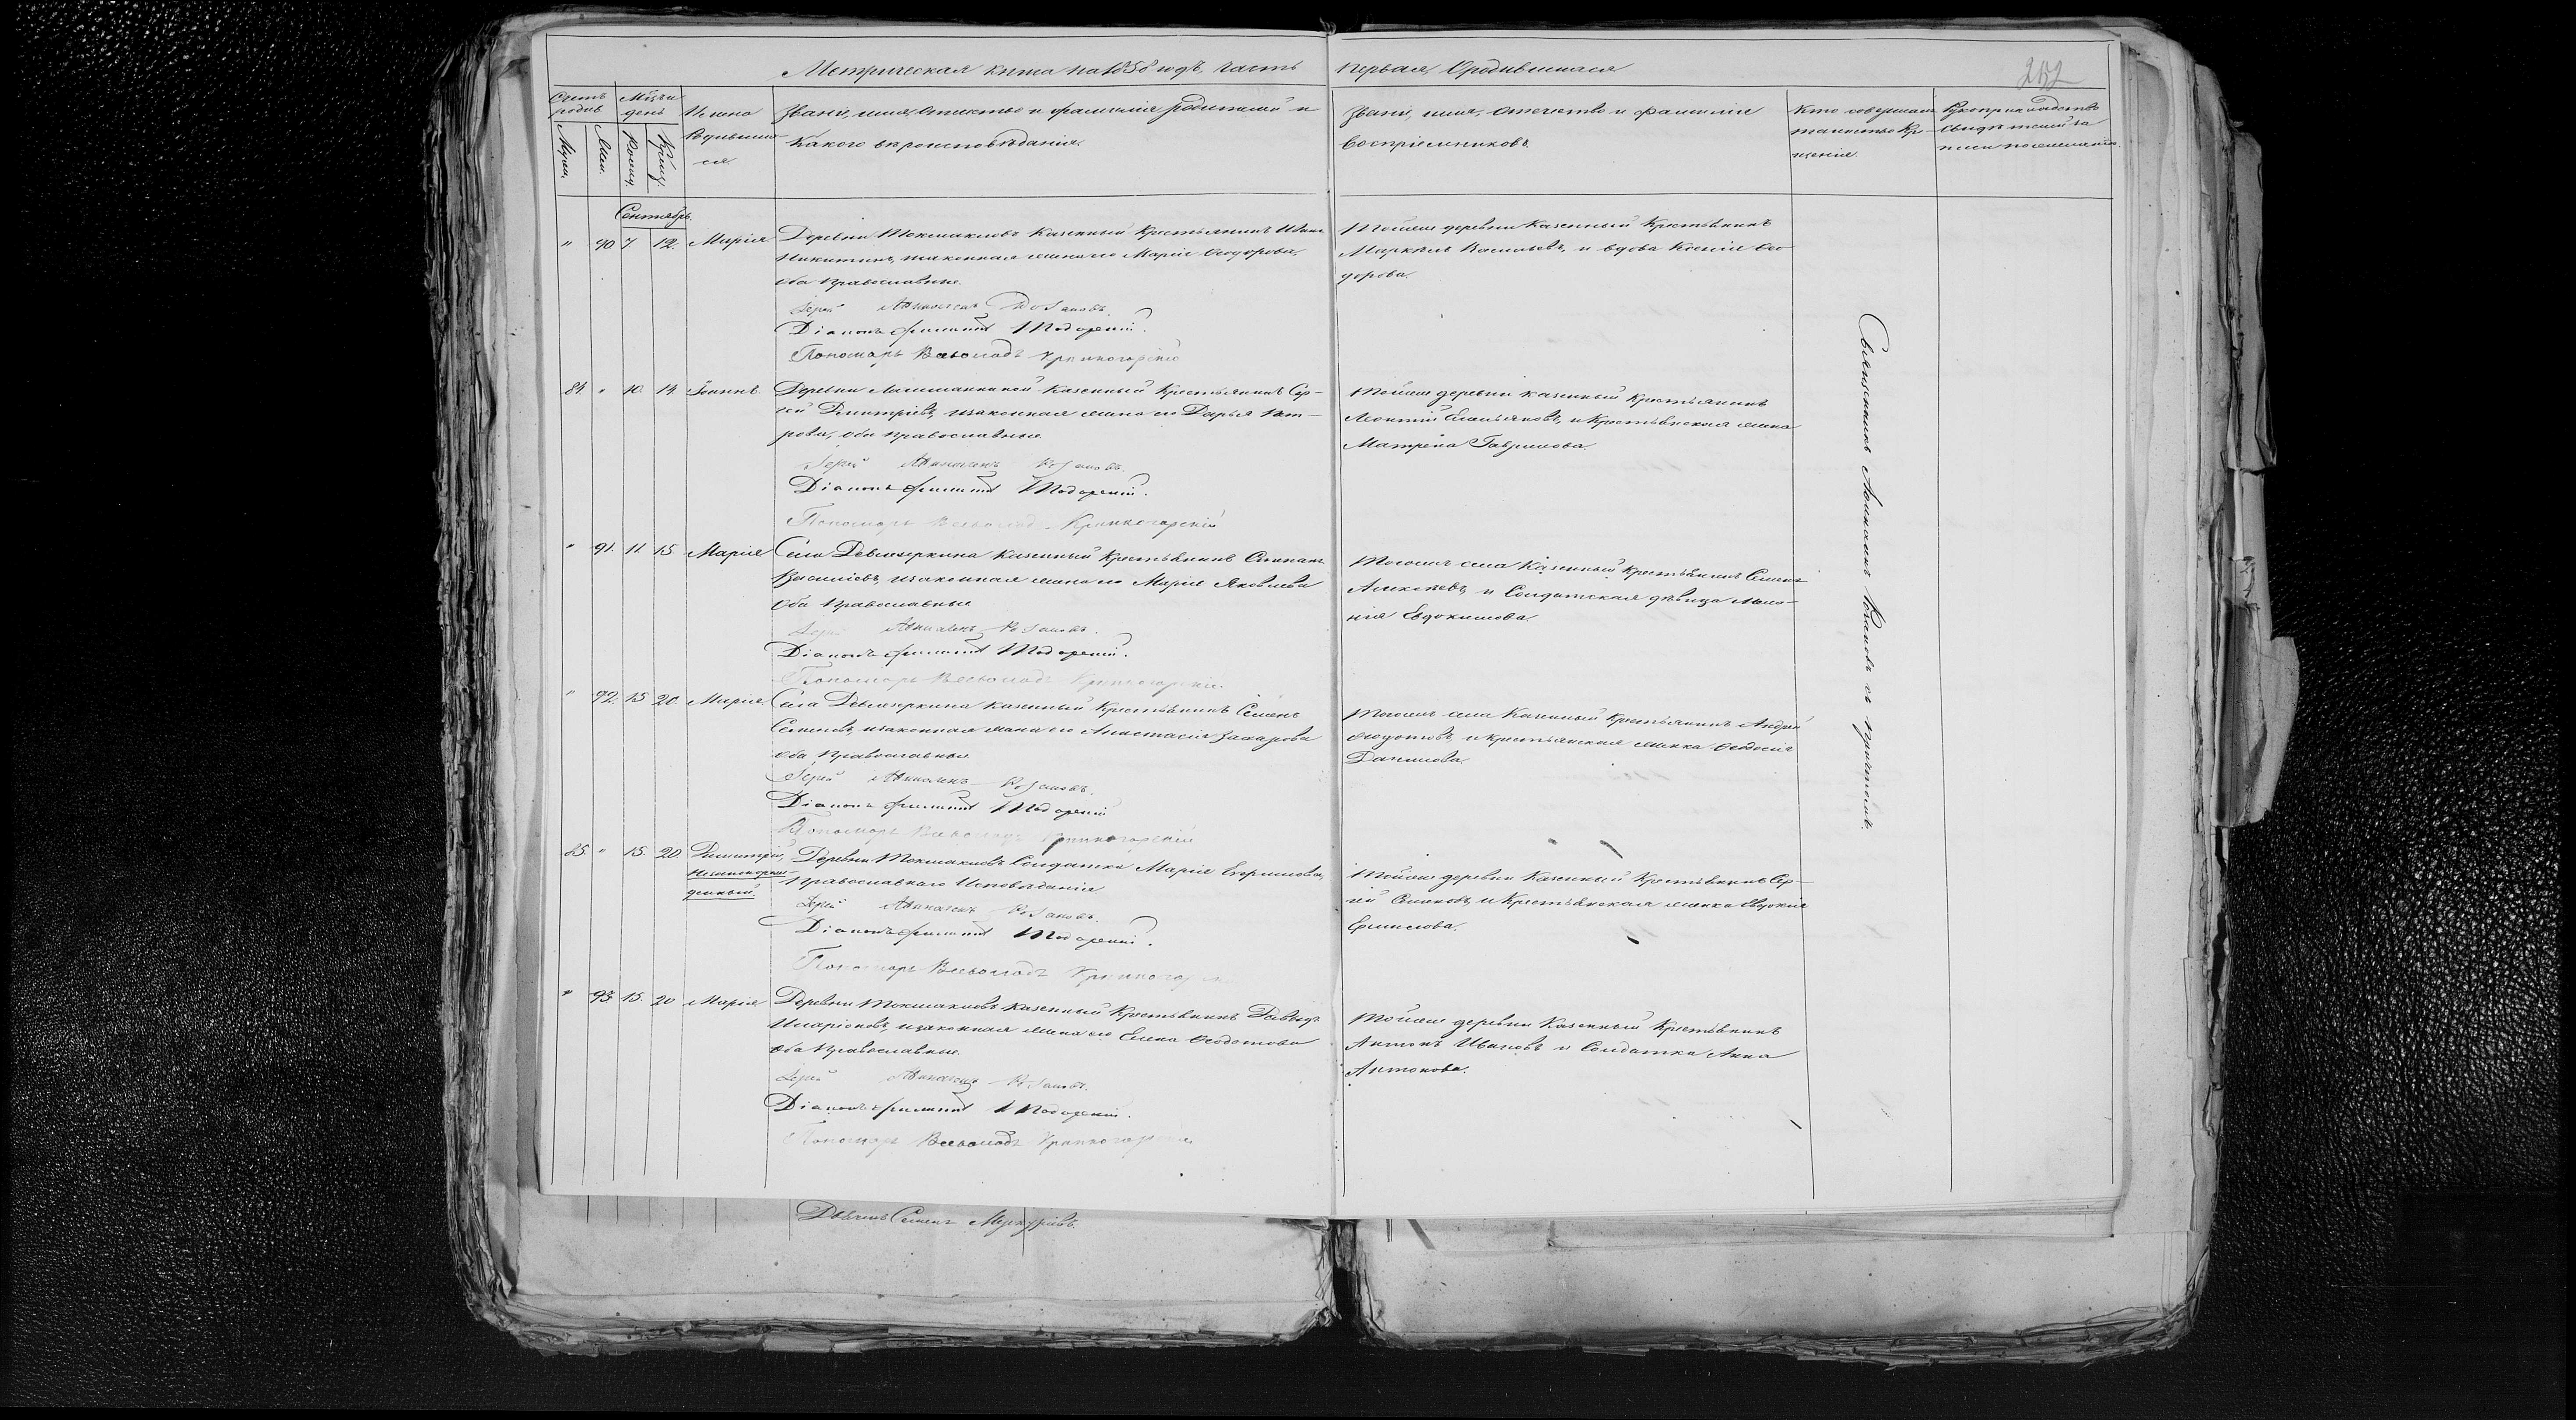 Метрическая книга на 1858 годъ, часть первая, о родившихся
252
Счетъ родив.
Мѣсяцъ и день
Имена родившихся.
Званіе, имя, отчество и фамилія родителей и
какого вѣроисповѣданія.
Званіе, имя, отчество и фамилія
воспріемниковъ.
Кто совершалъ
таинство кре-
щенія.
Рукоприкладство
свидѣтелей за
писи по желанію.
Сентябрь.
" 90 7 12. Марія
Деревни Токмакловъ казенный крестьянинъ Иванъ
Никитинъ, и законная жена его Марія Ѳеодорова,
оба православные.
Іерей Розановъ.
Діаконъ
Пономарь Всеволодъ Крѣпкогорскій
Тойже деревни казенный крестьянинъ
Маркелъ Васильевъ, и вдова Ксенія Ѳео-
дорова.
84. " 10. 14. Іоаннъ.
Деревни казенный крестьянинъ Сер-
гѣй Димитріевъ, и законная жена его Дарья Пет-
рова, оба православные.
Іерей Розановъ.
Діаконъ
Пономарь Всеволодъ Крѣпкогорскій
Тойже деревни казенный крестьянинъ
Леонтій Емельяновъ, и крестьянская жена
Матрена Гаврилова.
" 91. 11. 15. Марія
Села Девлезеркина казенный крестьянинъ Степанъ
Васильевъ, и законная жена его Марія Яковлева
оба православные
Іерей Розановъ.
Діаконъ
Пономарь Всеволодъ Крѣпкогорскій.
Тогоже села казенный крестьянинъ Семенъ
Алексѣевъ, и солдатская дѣвица Мела-
нія Евдокимова.
" 92. 15 20. Марія
Села Девлезеркина казенный крестьянинъ Семенъ
Семеновъ, и законная жена его Анастасія Захарова
оба православные
Іерей Розановъ.
Діаконъ
Пономарь Всеволодъ Крѣпкогорскій
Тогоже села казенный крестьянинъ Андрей
Ѳеодотовъ, и крестьянская женка Ѳеодосія
Данилова.
85. " 15. 20. Димитрій,
незаконорож-
денный.
Деревни Токмакловъ солдатка Марія
православнаго исповѣданія
Іерей Розановъ.
Діаконъ
Пономарь Всеволодъ
Тойже деревни казенный крестьянинъ Сер-
гѣй Семеновъ, и крестьянская женка Евдокія
Ермилова.
" 93. 15. 20 Марія
Деревни Токмаклов казенный крестьянинъ Давыдъ
Иларіоновъ, и законная жена его Елена Ѳеодотова
оба православные.
Іерей Розановъ.
Діаконъ
Пономарь Всеволодъ
Тойже деревни казенный крестьянинъ
Антонъ Ивановъ и солдатка Анна
Антонова.
Священникъ Розановъ съ причтомъ.
Семенъ Меркурьевъ.